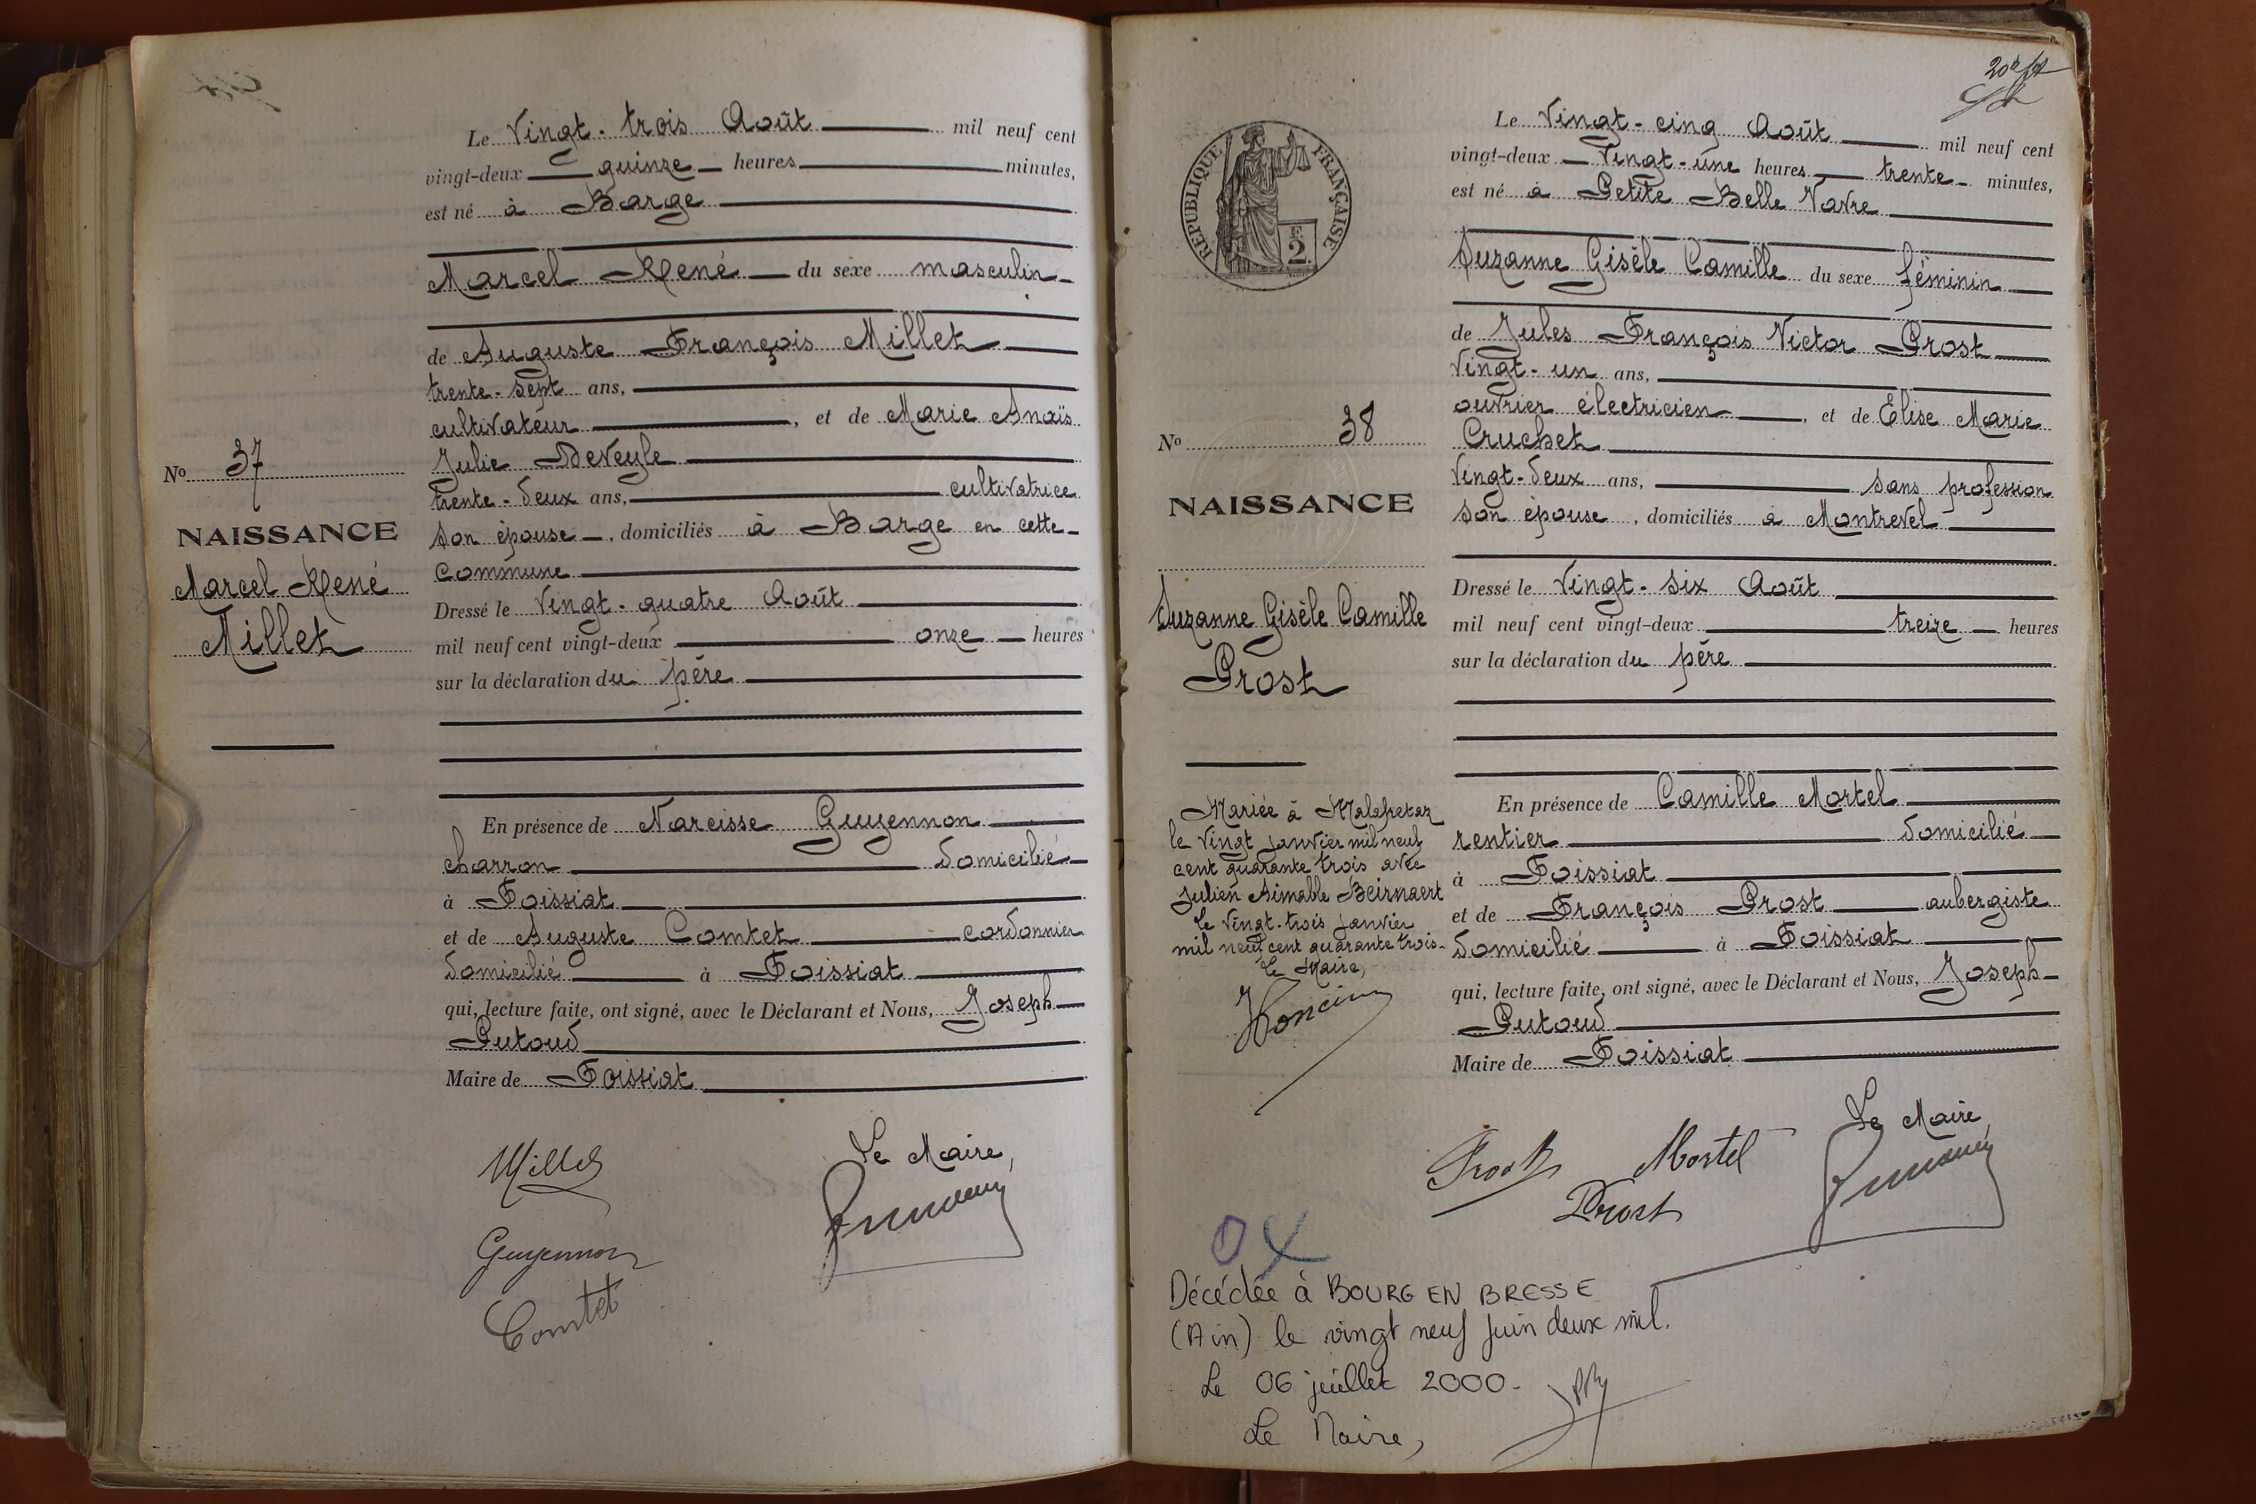 Le Vingt-trois Août mil neuf cent
vingt-deux quinze heures minutes,
est né à Barge
Marcel René du sexe masculin
de Auguste François Millet
trente-sept ans,
cultivateur, et de Marie Anaïs
Julie Deveyle
trente-deux ans, cultivatrice
son épouse, domiciliés à Barge en cette
commune
Dressé le Vingt-quatre Août
mil neuf cent vingt-deux onze heures
sur la déclaration du père
En présence de Narcisse Guyennon
charron domicilié
à Foissiat
et de Auguste Comtet cordonnier
domicilié à Foissiat
qui, lecture faite, ont signé, avec le Déclarant et Nous, Joseph
Putoud
Maire de Foissiat
No 37
NAISSANCE
Marcel René
Millet
Millet
Le Maire,
Guyennon
Comtet
RÉPUBLIQUE FRANÇAISE
F.
2
Le Vingt-cinq Août mil neuf cent
vingt-deux Vingt-une heures trente minutes,
est né à Petite Belle Vavre
Suzanne Gisèle Camille du sexe féminin
de Jules François Victor Prost
Vingt-un ans,
ouvrier électricien, et de Elise Marie
Cruchet
Vingt-deux ans, sans profession
son épouse, domiciliés à Montrevel
Dressé le Vingt-six Août
mil neuf cent vingt-deux treize heures
sur la déclaration du père
En présence de Camille Mortel
rentier domicilié
à Foissiat
et de François Prost aubergiste
domicilié à Foissiat
qui, lecture faite, ont signé, avec le Déclarant et Nous, Joseph
Putoud
Maire de Foissiat
No 38
NAISSANCE
Suzanne Gisèle Camille
Prost
Mariée à Malafretaz
le Vingt janvier mil neuf
cent quarante trois avec
Julien Aimable Beirnaert
Le Vingt-trois janvier
mil neuf cent quarante trois-
Le Maire,
Le Maire,
Prost Mortel
Prost
Décédée à BOURG EN BRESSE
(Ain) le vingt neuf juin deux mil.
Le 06 juillet 2000-
Le Maire,